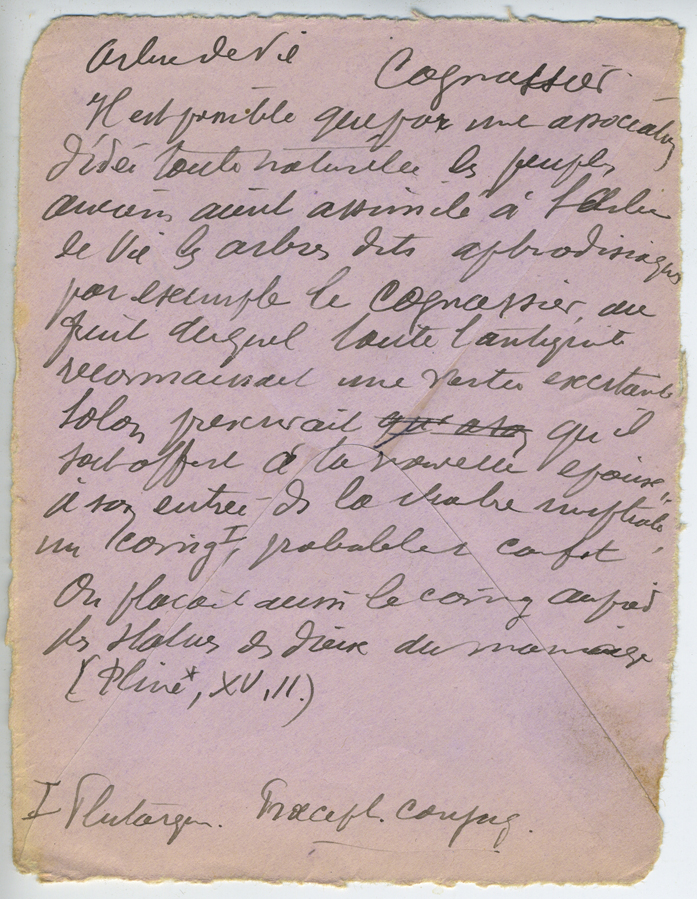 Arbre de Vie Cognassier
Il est possible que par une association
d'idée toute naturelle les peuples
anciens aient assimilé à l'Arbre
de Vie les arbres dits aphrodisiaques
par exemple le Cognassier, au
fruit duquel toute l'antiquité
reconnaissait une vertu excitante
Solon prescrivait qu'il
soit offert à la nouvelle épouse,
à son entrée ds la chabre nuptiale,
un coing I, probablet confit
On plaçait aussi le coing au pied
des statues des dieux du mariage
(Pline*, XV, 11.)
I Plutarque. Praecept. conjug.